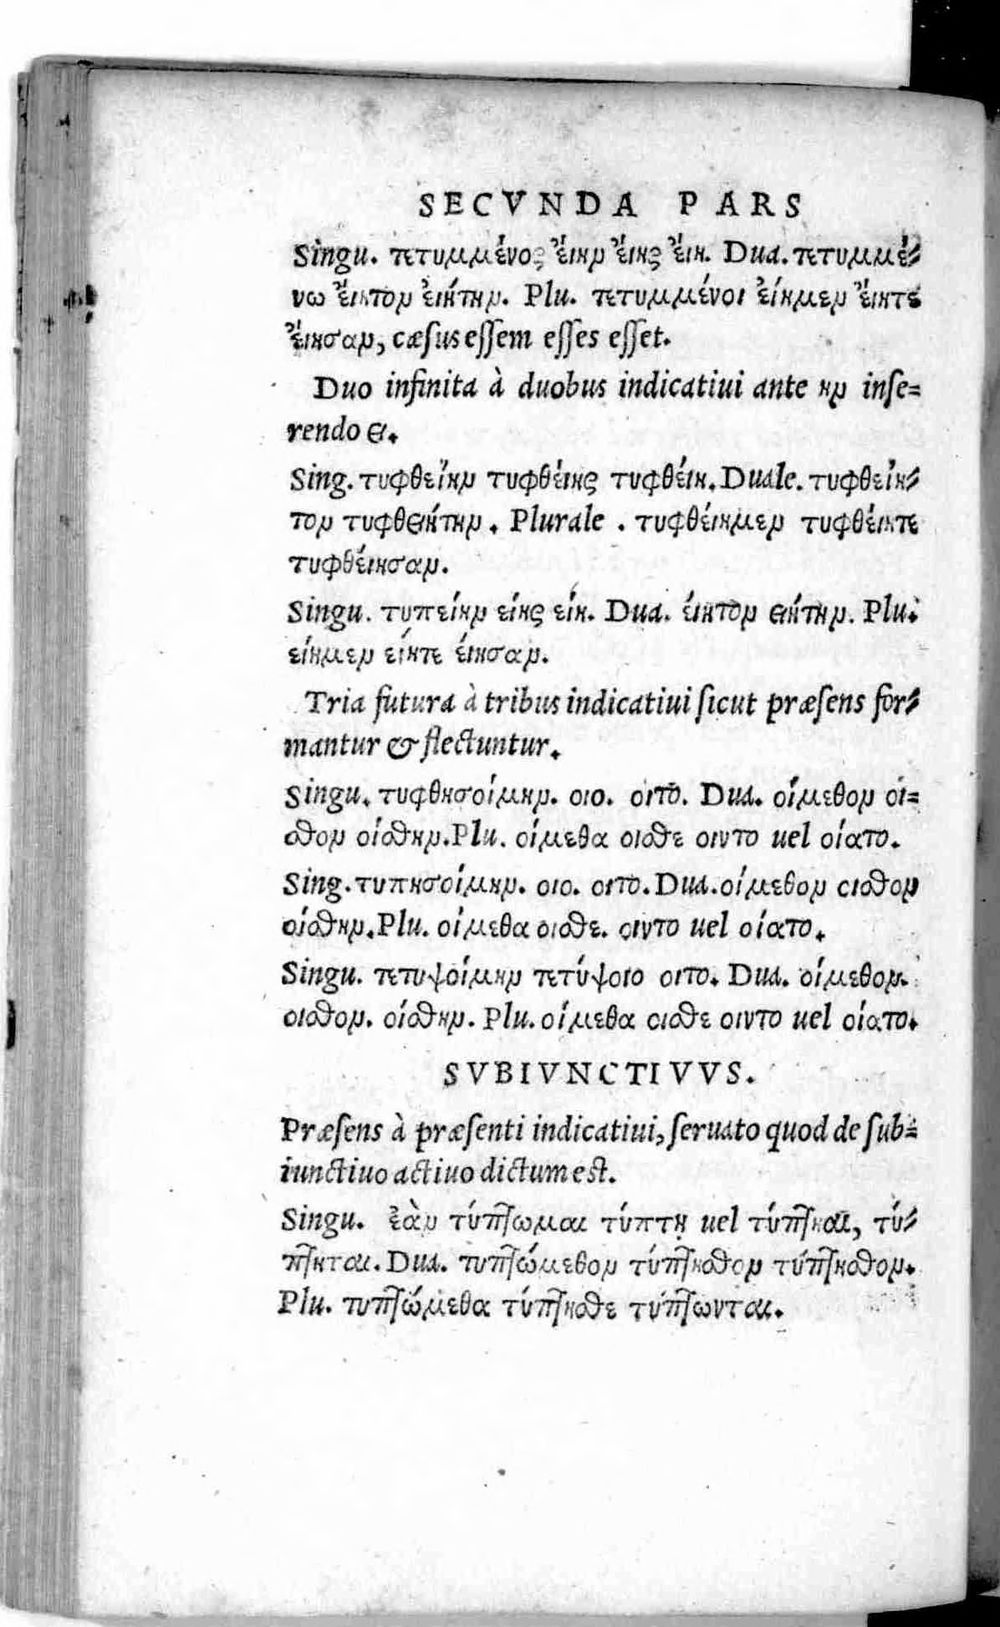 SECVNDA PARS
Singu. τετυμμένος ἔιην ἔιης ἔιη. Dua. τετυμμέ-
νω ἔιητον ἐιήτην. Plu. τετυμμένοι ἐίημεν ἔιητε
ἔιησαν, cæsus essem esses esset.
Duo infinita à duobus indicatiui ante ην inse=
rendo ει.
Sing. τυφθείην τυφθέιης τυφθέιη. Duale. τυφθείη-
τον τυφθειήτην. Plurale . τυφθέιημεν τυφθέιητε
τυφθέιησαν.
Singu. τυπείην είης είη. Dua. έιητον ειήτην. Plu.
είημεν είητε έιησαν.
Tria futura à tribus indicatiui sicut præsens for-
mantur & flectuntur.
Singu. τυφθησοίμην. οιο. οιτο. Dua. οίμεθον οί=
σθον οίσθην. Plu. οίμεθα οισθε οιντο uel οίατο.
Sing. τυπησοίμην. οιο. οιτο. Dua. οίμεθον οισθον
οίσθην. Plu. οίμεθα οισθε. οιντο uel οίατο.
Singu. τετυψοίμην τετύψοιο οιτο. Dua. οίμεθον.
οισθον. οίσθην. Plu. οίμεθα οισθε οιντο uel οίατο.
SVBIVNCTIVVS.
Præsens à præsenti indicatiui, seruato quod de sub=
iunctiuo actiuo dictum est.
Singu. ἐὰν τύπτωμαι τύπτῃ uel τύπτηαι, τύ-
πτηται. Dua. τυπτώμεθον τύπτησθον τύπτησθον.
Plu. τυπτώμεθα τύπτησθε τύπτωνται.